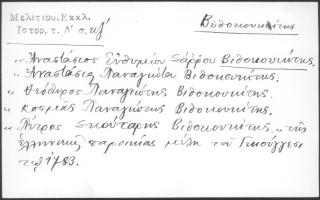 Μελετίου, Εκκλ.
Ιστορ. τ. Δ' σ. κζ'
Βιθοκουκιώτης
"Αναστάσιος Ευθυμίου Σάρρου Βιθοκουκιώτης
"Αναστάσις Παναγιώτα Βιθοκουκιώτης.
" Θεόδωρος Παναγιώτης Βιθοκουκιώτης.
" Κοσμάς Παναγιώτης Βιθοκουκιώτης.
" Πέτρος Σκούταρης Βιθοκουκιώτης" της
ελληνικής παροικίας μέλη του
τω 1783.